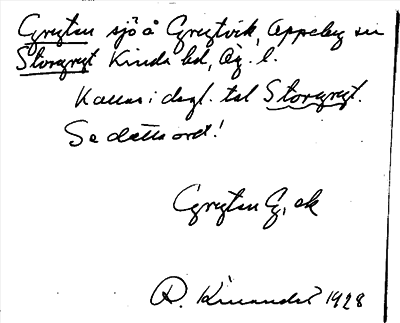 Grytsn sjö å Grytvik, Appeby su
Storgryt Kinda hd, Ög. l.
Kallas i dagl. tal Storgryt.
Se detta ord!
Grytsn G, ek
R. 1928